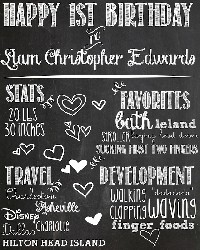 HAPPY 1ST BIRTHDAY
to
Liam Christopher Edwards
STATS
20 LBS
30 INCHES
FAVORITES
bath leland
SUCKING FIRST TWO FINGERS
TRAVEL
Charleston
Asheville
DISNEY
Charlotte
HILTON HEAD ISLAND
DEVELOPMENT
WALKING
CLAPPING waving
finger foods